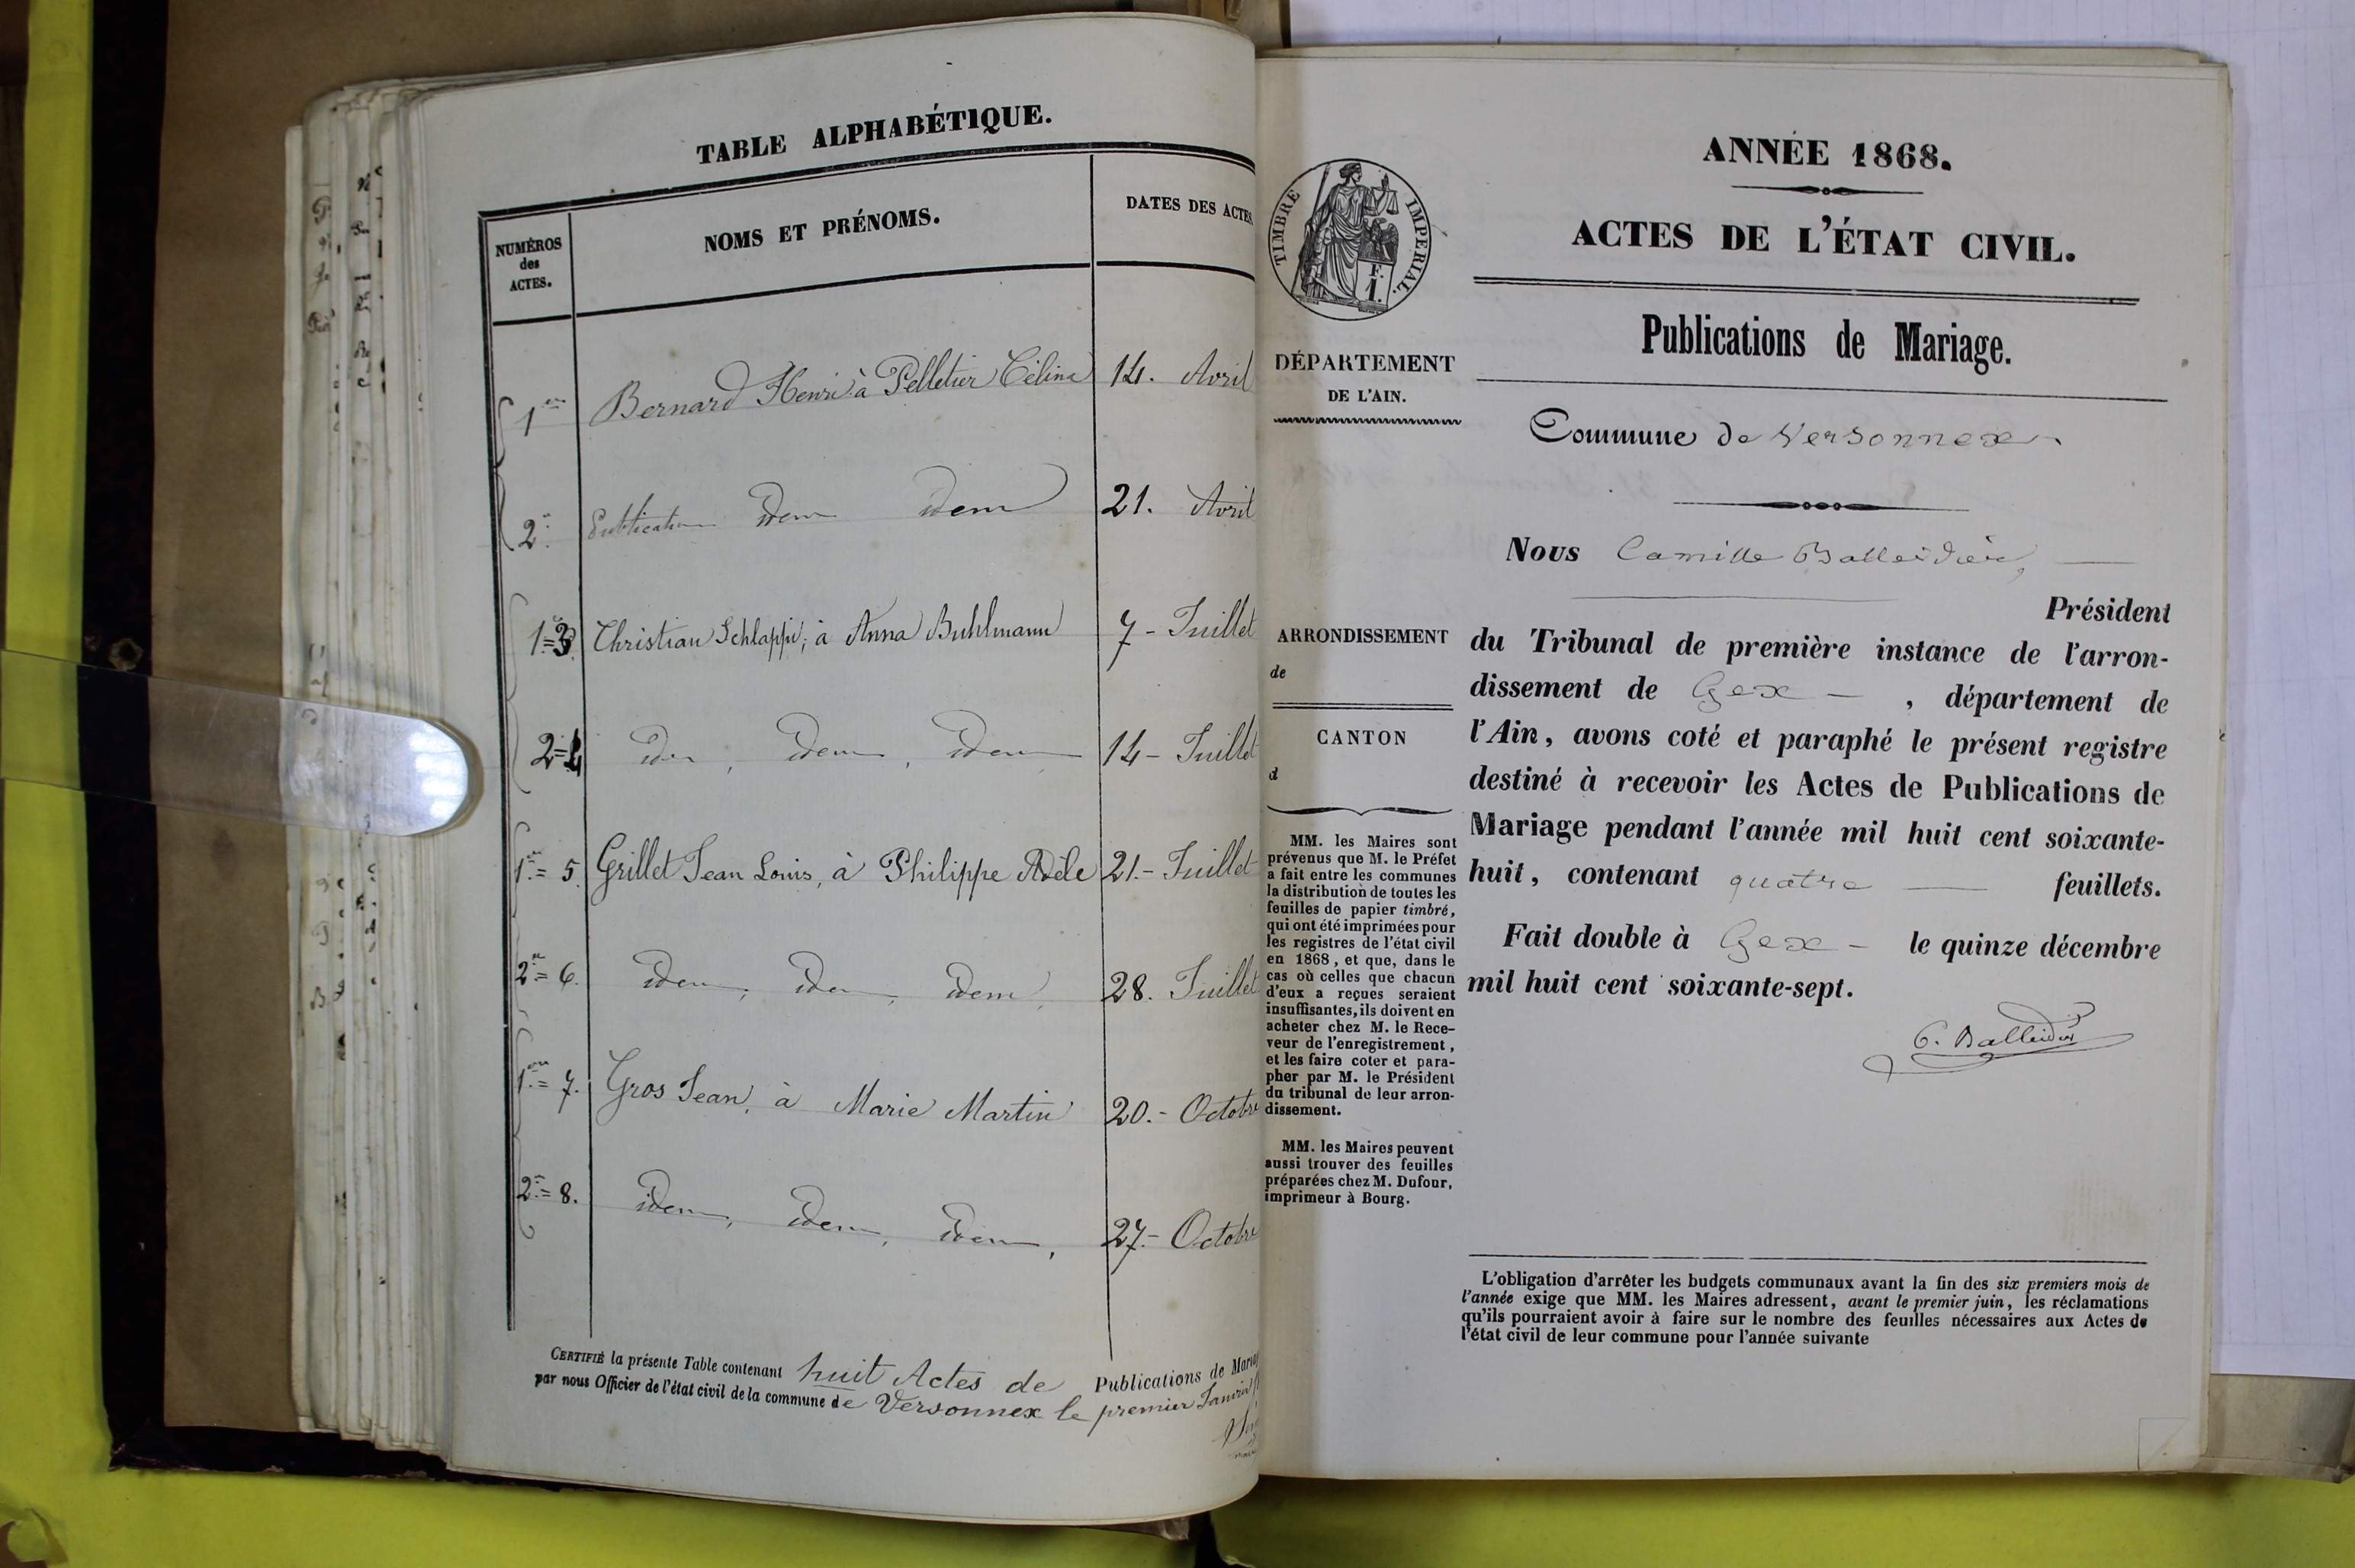 TABLE ALPHABÉTIQUE.
NUMÉROS
des
ACTES.
NOMS ET PRÉNOMS.
DATES DES ACTES
1ère Bernard Henri à Pelletier Célina 14. Avril
2e. Publication idem idem 21. Avril
1=3 Christian Schlappi, à Anna Buhlmann 7 - Juillet
2=4 idem, idem, idem 14 - Juillet
1ère = 5. Grillet Jean Louis, à Philippe Adèle 21. - Juillet
2e = 6. idem, idem, idem, 28. Juillet
1ère = 7. Gros Jean, à Marie Martin 20. - Octobre
2e = 8. idem, idem, idem, 27. - Octobre
CERTIFIÉ la présente Table contenant huit Actes de Publications de Mariag
par nous Officier de l'état civil de la commune de Versonnex le premier Janvier
TIMBRE IMPERIAL.
F.
1.
DÉPARTEMENT
DE L'AIN.
ARRONDISSEMENT
de
CANTON
d
MM. les Maires sont
prévenus que M. le Préfet
a fait entre les communes
la distribution de toutes les
feuilles de papier timbré,
qui ont été imprimées pour
les registres de l'état civil
en 1868, et que, dans le
cas où celles que chacun
d'eux a reçues seraient
insuffisantes, ils doivent en
acheter chez M. le Rece-
veur de l'enregistrement,
et les faire coter et para-
pher par M. le Président
du tribunal de leur arron-
dissement.
MM. les Maires peuvent
aussi trouver des feuilles
préparées chez M. Dufour,
imprimeur à Bourg.
ANNÉE 1868.
ACTES DE L'ÉTAT CIVIL.
Publications de Mariage.
Commune de Versonnex
Nous Camille Balleidier,
Président
du Tribunal de première instance de l'arron-
dissement de Gex - , département de
l'Ain, avons coté et paraphé le présent registre
destiné à recevoir les Actes de Publications de
Mariage pendant l'année mil huit cent soixante-
huit, contenant quatre feuillets.
Fait double à Gex - le quinze décembre
mil huit cent soixante-sept.
C. Balleidier
L'obligation d'arrêter les budgets communaux avant la fin des six premiers mois de
l'année exige que MM. les Maires adressent, avant le premier juin, les réclamations
qu'ils pourraient avoir à faire sur le nombre des feuilles nécessaires aux Actes de
l'état civil de leur commune pour l'année suivante